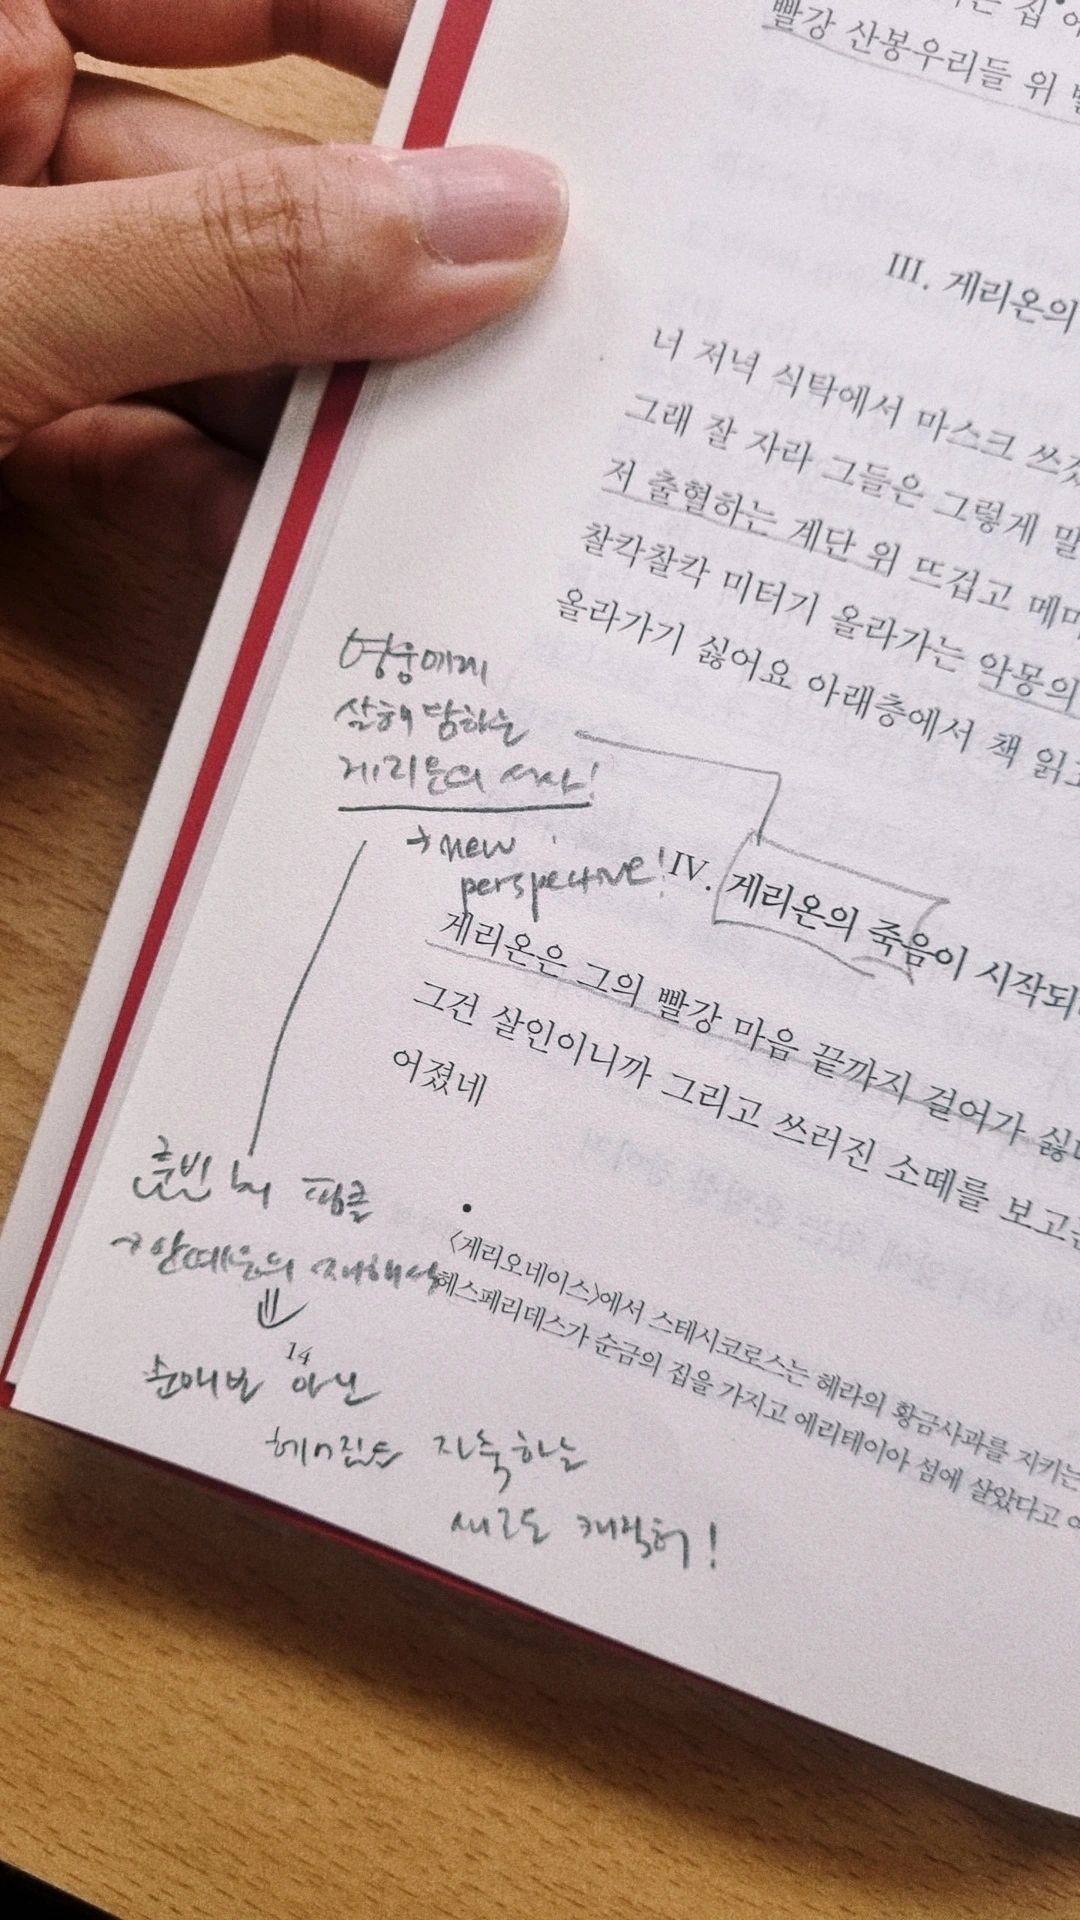 빨강 산봉우리들 위
III. 게리온의
너 저녁 식탁에서 마스크 쓰
그래 잘 자라 그들은 그렇게 말
저 출혈하는 계단 위 뜨겁고 메마
찰칵찰칵 미터기 올라가는 악몽의
올라가기 싫어요 아래층에서 책 읽고
영웅에게
살해 당하는
게리온의 서사!
→ new
perspective!
IV. 게리온의 죽음이 시작되
게리온은 그의 빨강 마음 끝까지 걸어가 싫
그건 살인이니까 그리고 쓰러진 소떼를 보고는
어졌네
롤빈 허 피클
→ 안때운의 재해석
⇓
순애보 아닌
헤게진트 자축하는
새로운 캐릭터!
〈게리오네이스〉에서 스테시코로스는 헤라의 황금사과를 지키는
헤스페리데스가 순금의 집을 가지고 에리테이아 섬에 살았다고
14